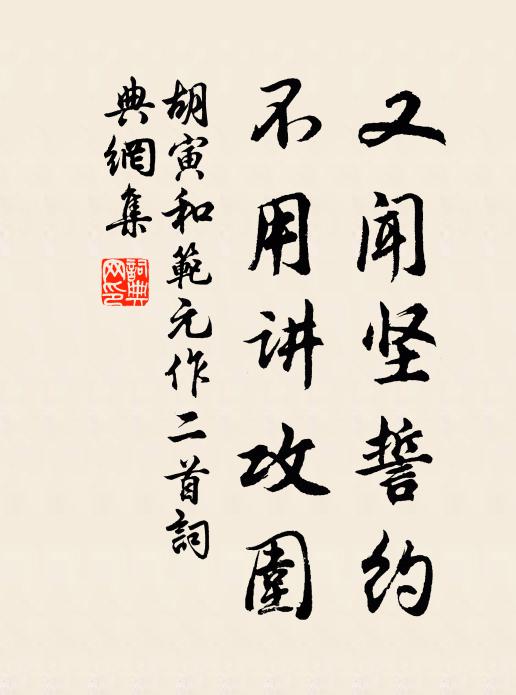 又闻坚誓约
不用讲攻圍
胡寅和範元作二首詞
典網集
詞典
网印